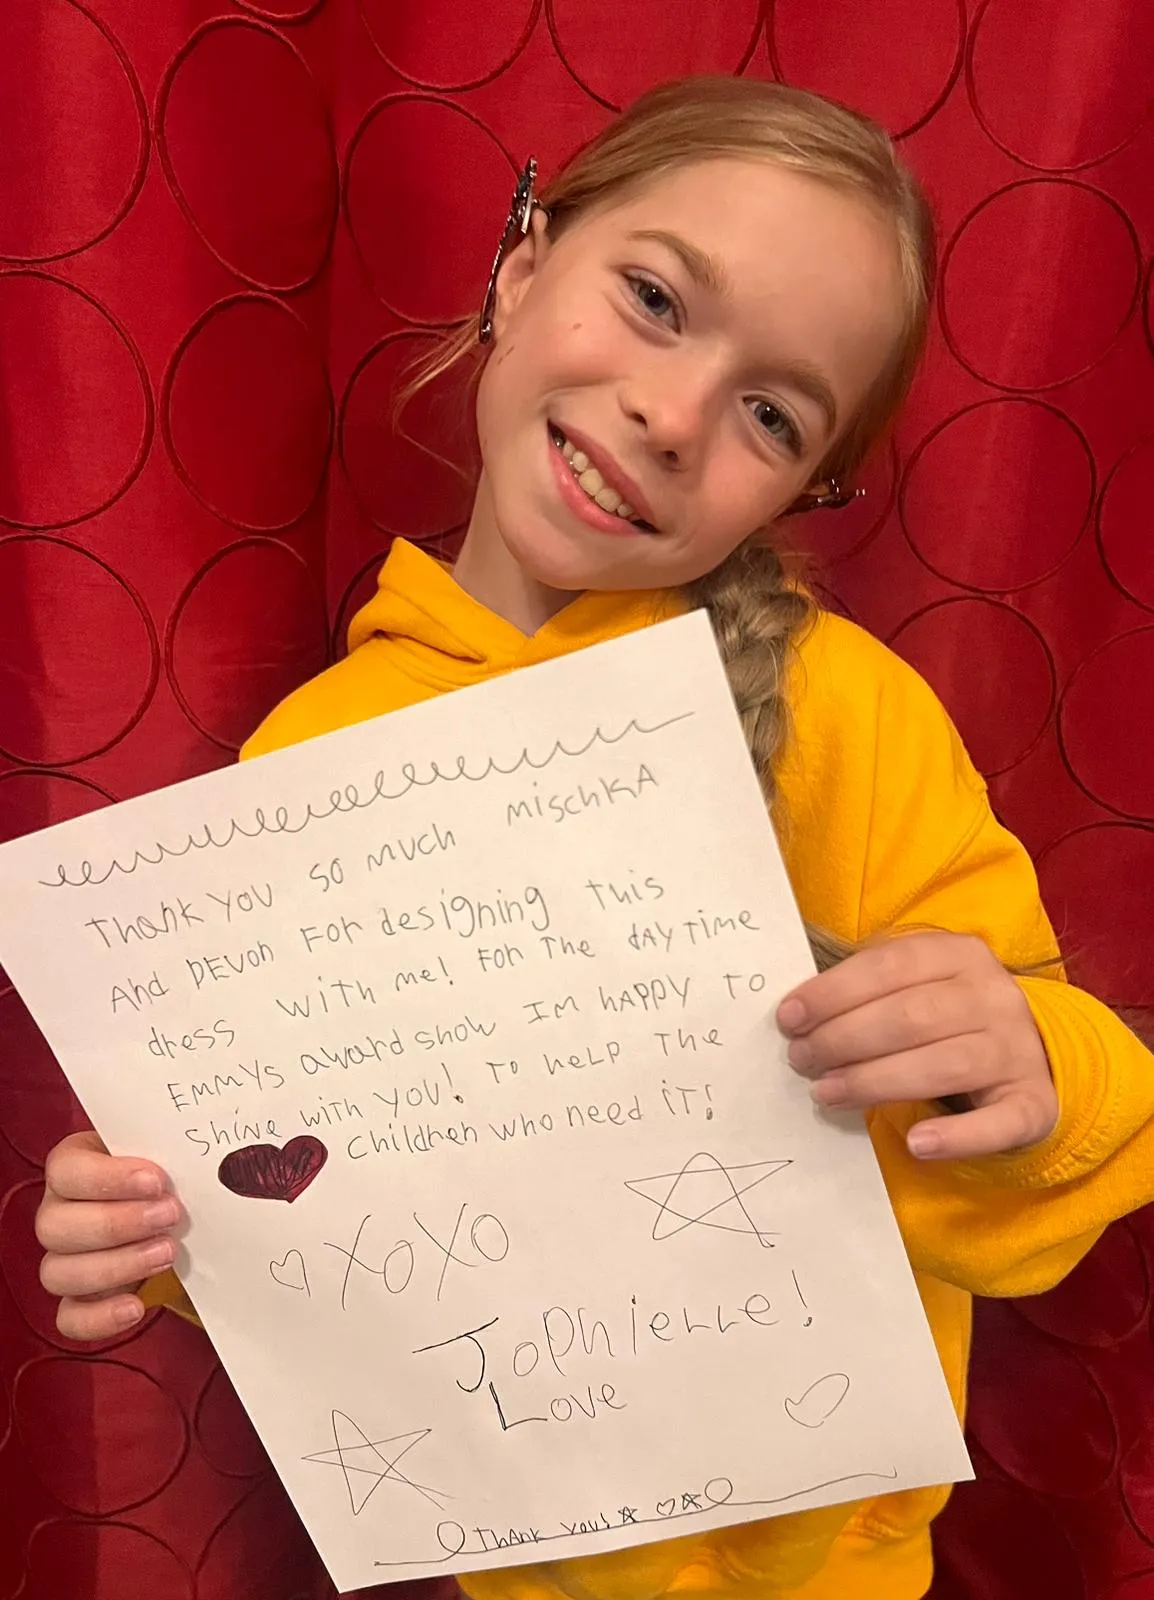 Thank you so much mischkA
And DEVon For designing this
dress with me! For The dAYTime
EmmYs award show Im hAPPY To
Shine with YOU! To heLP The
children who need iT!
XOXO
JoPhieLLe!
Love
ThAnk you!